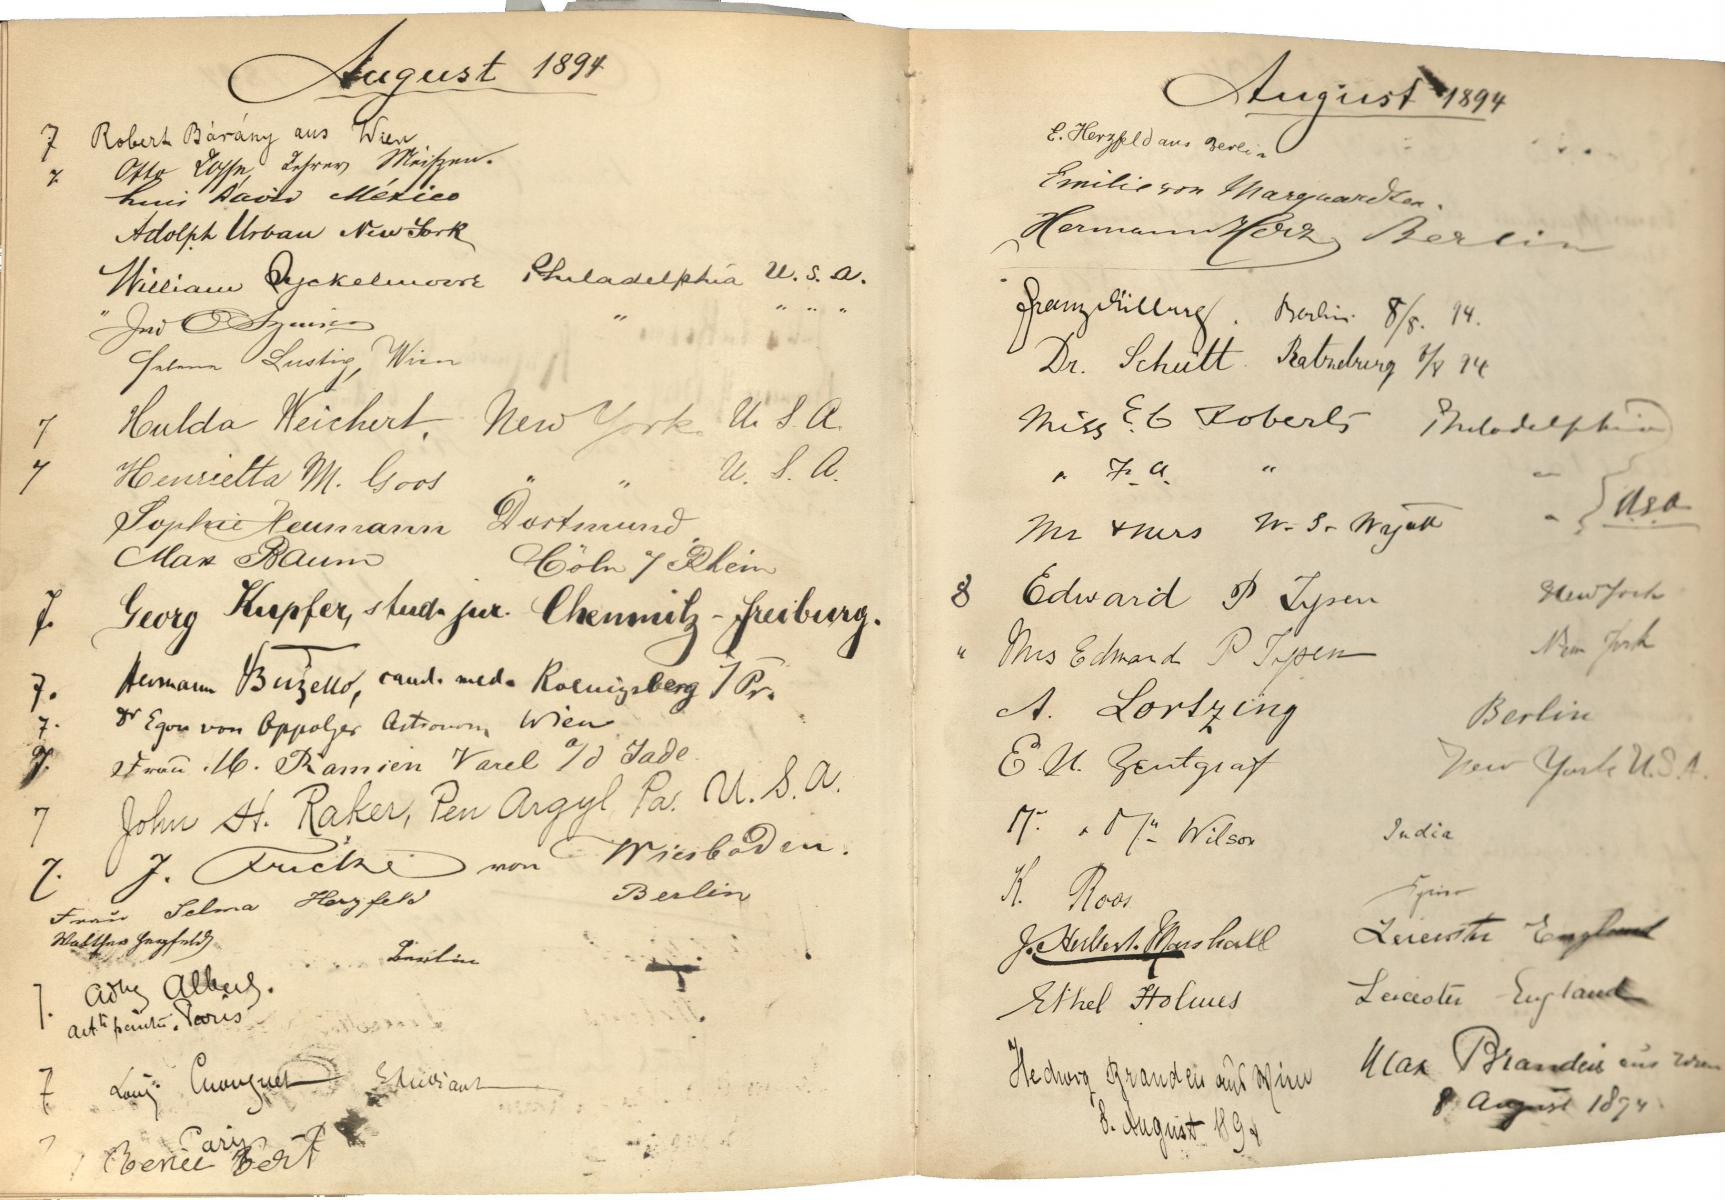 August 1894
7 Robert Bárány aus Wien
7. Otto Lehrer Meiszen.
Luis David México
Adolph Urban New York
William Dyckelmoore Philadelphia U.S.A.
" Jno " " " "
Helene Lustig, Wien
7 Hulda Weichert, New York U.S.A.
7 Henrietta M. Goos " " U.S.A.
Sophie Neumann Dortmund
Max Baum Cöln / Rhein
7. Georg Kupfer, stud. jur. Chemnitz-Freiburg.
7. Hermann Buzello, cand. med. Koenigsberg / Pr.
7. Dr Egon von Oppolzer Astronom, Wien
7. Frau M. Ramien Varel a/d Jade
7 John H. Raker, Pen Argyl Pa. U.S.A.
7. J. Fricke von Wiesbaden.
Frau Selma Herzfeld Berlin
Walther Herzfeld Berlin
7. Albert.
artte peintre. Paris
7 Louis Etudiant
Paris
Renée Bert
August 1894
E. Herzfeld aus Berlin
Emilie von Marquardsen.
Hermann Herz Berlin
Franz Berlin 8/8. 94.
Dr. Schütt Ratzeburg 8/8 94
Miss E C Roberts Philadelphia
" F. A. " "
Mr & Mrs W. S. Wyatt " U.S.A
8 Edward P Tysen New York
" Mrs Edward P Tysen New York
A. Lortzing Berlin
E. U. Zentgraf New York U.S.A.
Mr. & Mrs Wilson India
K. Roos
J. Herbert Marshall Leicester England
Ethel Holmes Leicester England
Hedwig Brandeis aus Wien
8. August 1894
Max Brandeis aus Wien
8 August 1894